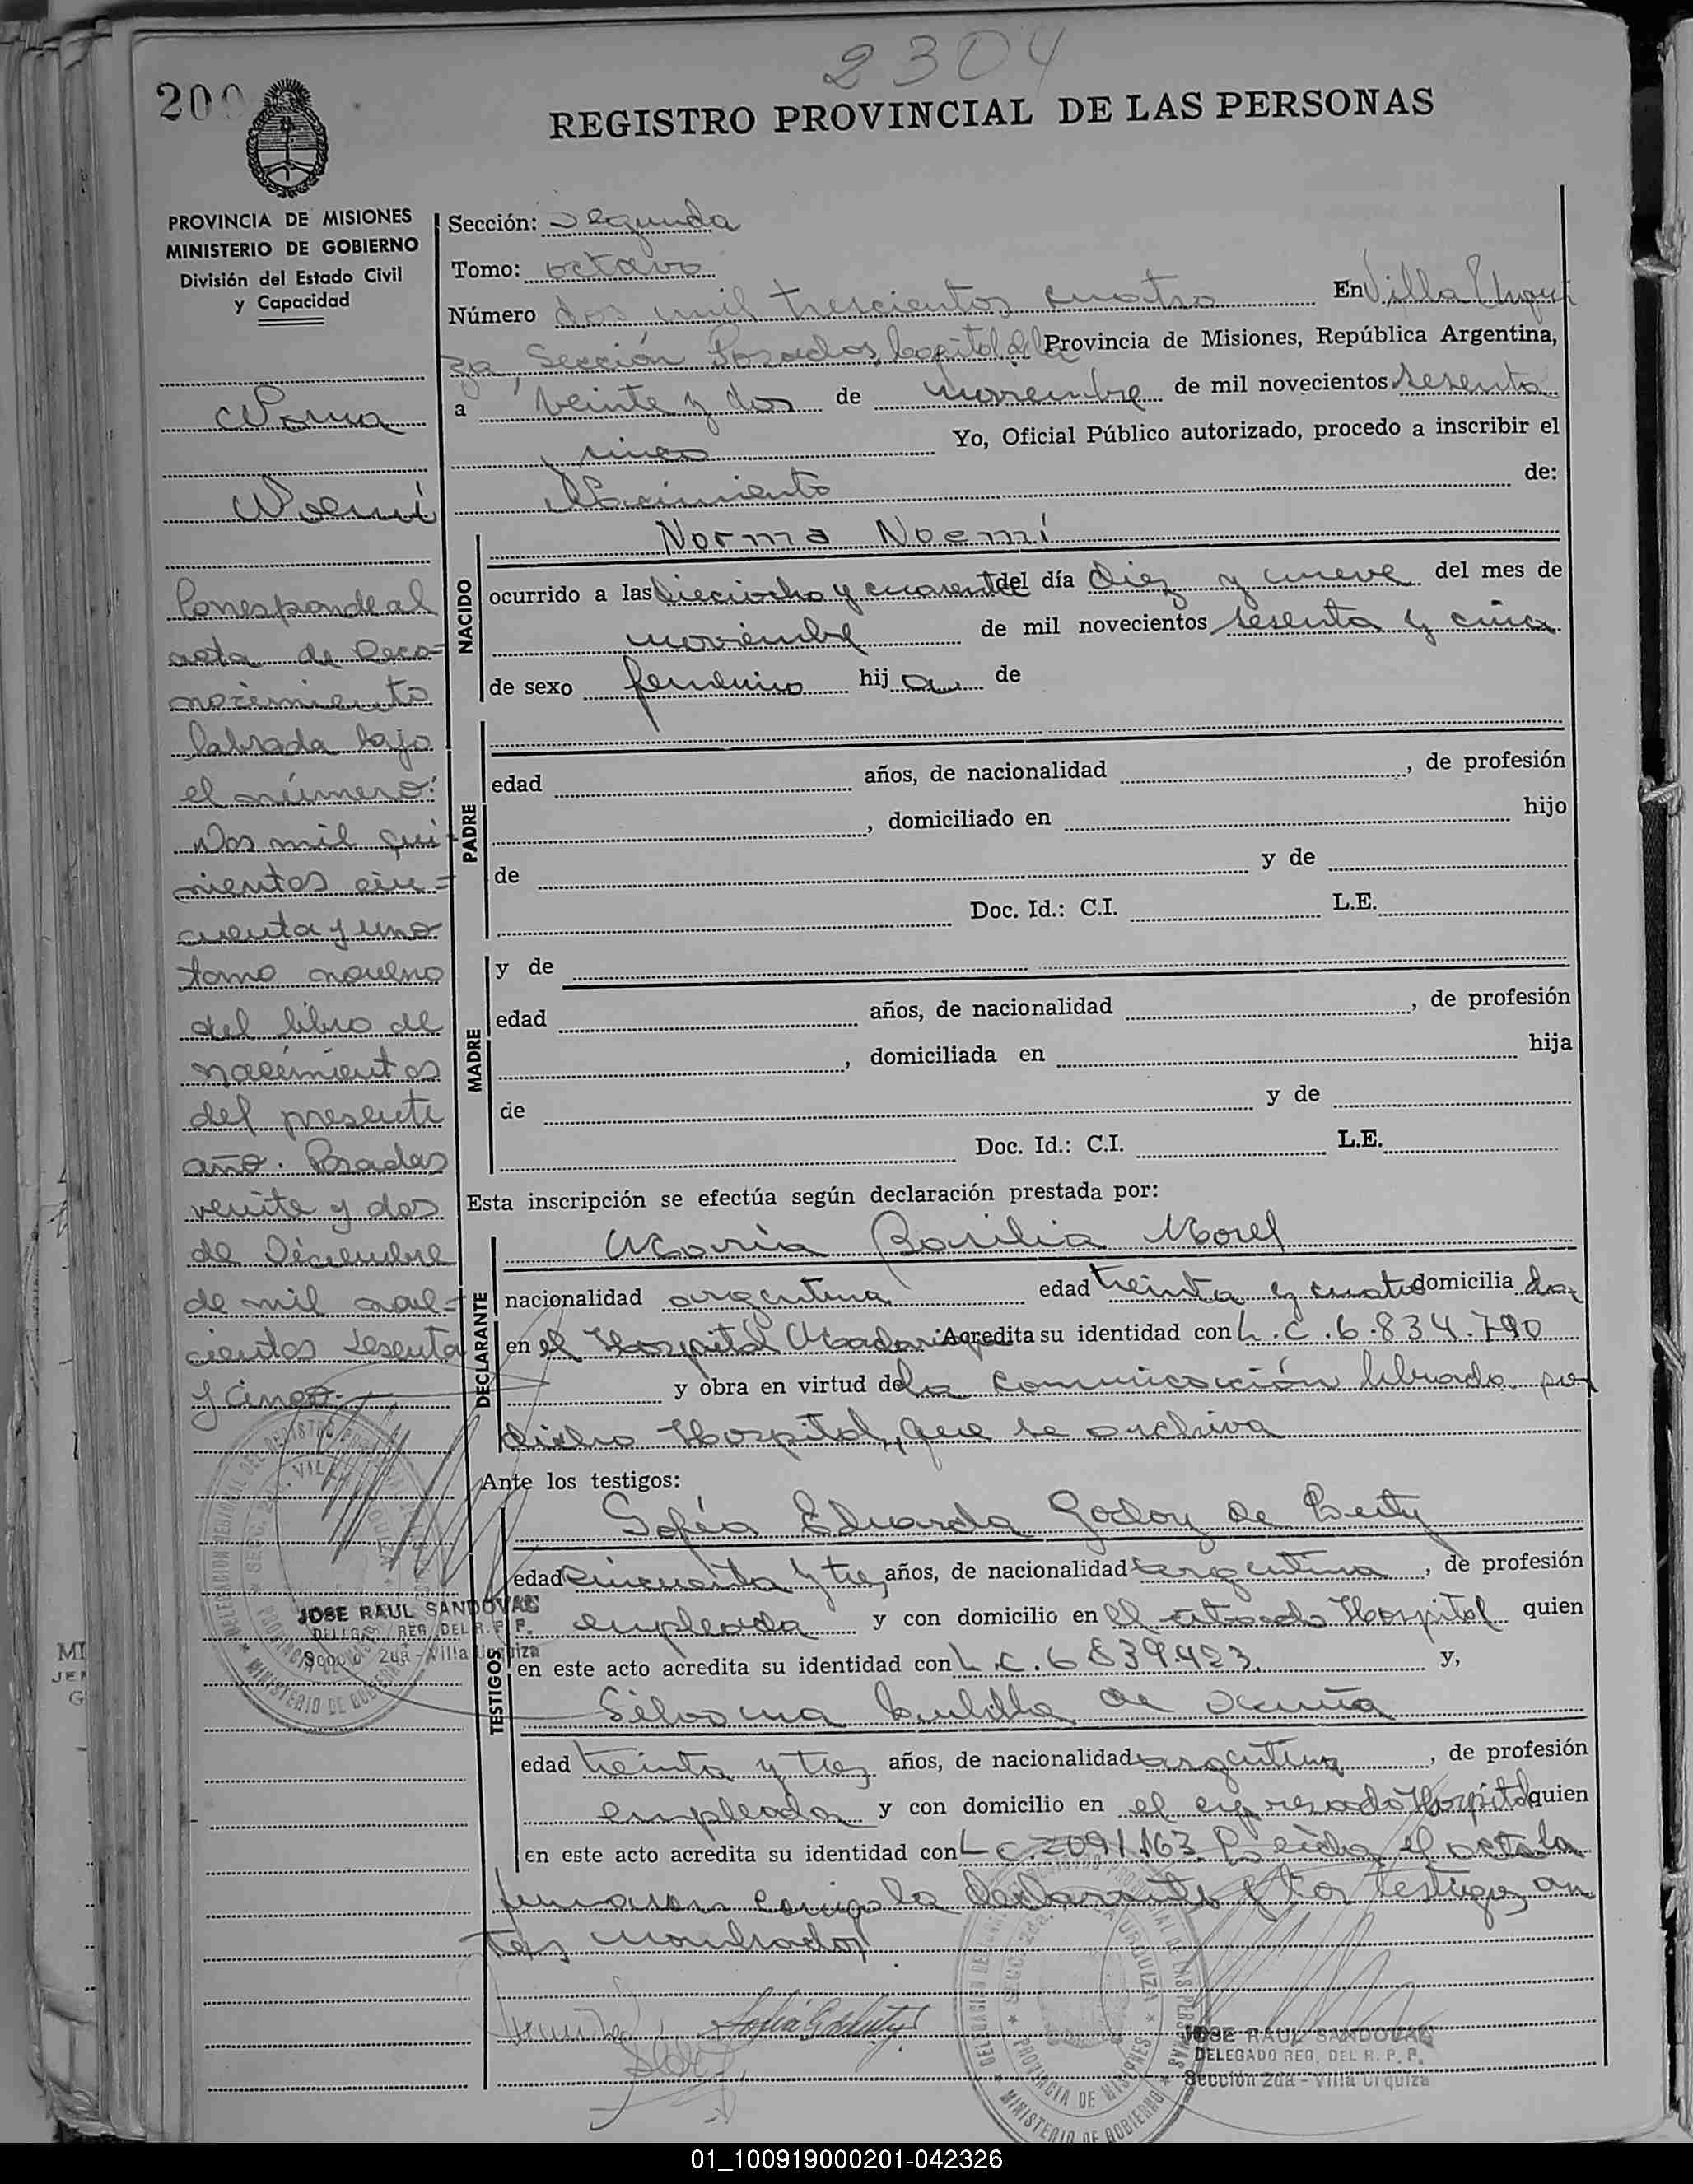 2304
200
REGISTRO PROVINCIAL DE LAS PERSONAS
PROVINCIA DE MISIONES
MINISTERIO DE GOBIERNO
División del Estado Civil
y Capacidad
Norma
Noemí
Corresponde al
acta de Reco=
nocimiento
labrada bajo
el número:
Dos mil qui
nientos cin=
cuenta y uno
tomo noveno
del libro de
nacimientos
del presente
año. Posadas
veinte y dos
de Diciembre
de mil nove=
cientos sesenta
y cinco.
JOSE RAUL SANDOVAL
DELEGADO REG. DEL R. P. P.
Sección 2da - Villa Urquiza
Sección: Segunda
Tomo: octavo
Número dos mil trescientos cuatro En Villa Urqui
za, Sección Posadas, Capital de la Provincia de Misiones, República Argentina,
a veinte y dos de noviembre de mil novecientos sesenta
y cinco Yo, Oficial Público autorizado, procedo a inscribir el
Nacimiento de:
NACIDO
Norma Noemí
ocurrido a las dieciocho y cuarenta del día diez y nueve del mes de
noviembre de mil novecientos sesenta y cinco
de sexo femenino hija de
PADRE
edad años, de nacionalidad , de profesión
, domiciliado en hijo
de y de
Doc. Id.: C.I. L.E.
MADRE
y de
edad años, de nacionalidad , de profesión
, domiciliada en hija
de y de
Doc. Id.: C.I. L.E.
Esta inscripción se efectúa según declaración prestada por:
DECLARANTE
María Basilia Morel
nacionalidad argentina edad treinta y cuatro domicilia da
en el Hospital Madariaga Acredita su identidad con L.C.6.834.790
y obra en virtud de la comunicación librada por
dicho Hospital, que se archiva
Ante los testigos:
TESTIGOS
Sofía Eduarda Godoy de
edad cincuenta y tres años, de nacionalidad argentina, de profesión
empleada y con domicilio en el citado Hospital quien
en este acto acredita su identidad con L.C.6839.423. y,
Silvana de Acuña
edad treinta y tres años, de nacionalidad argentina, de profesión
empleada y con domicilio en el expresado Hospital quien
en este acto acredita su identidad con L C 2091.163. Leída el acta la
firmaron conmigo la declarante y los testigos an
tes nombrados
JOSE RAUL SANDOVAL
DELEGADO REG. DEL R. P. P.
Sección 2da - Villa Urquiza
01_100919000201-042326